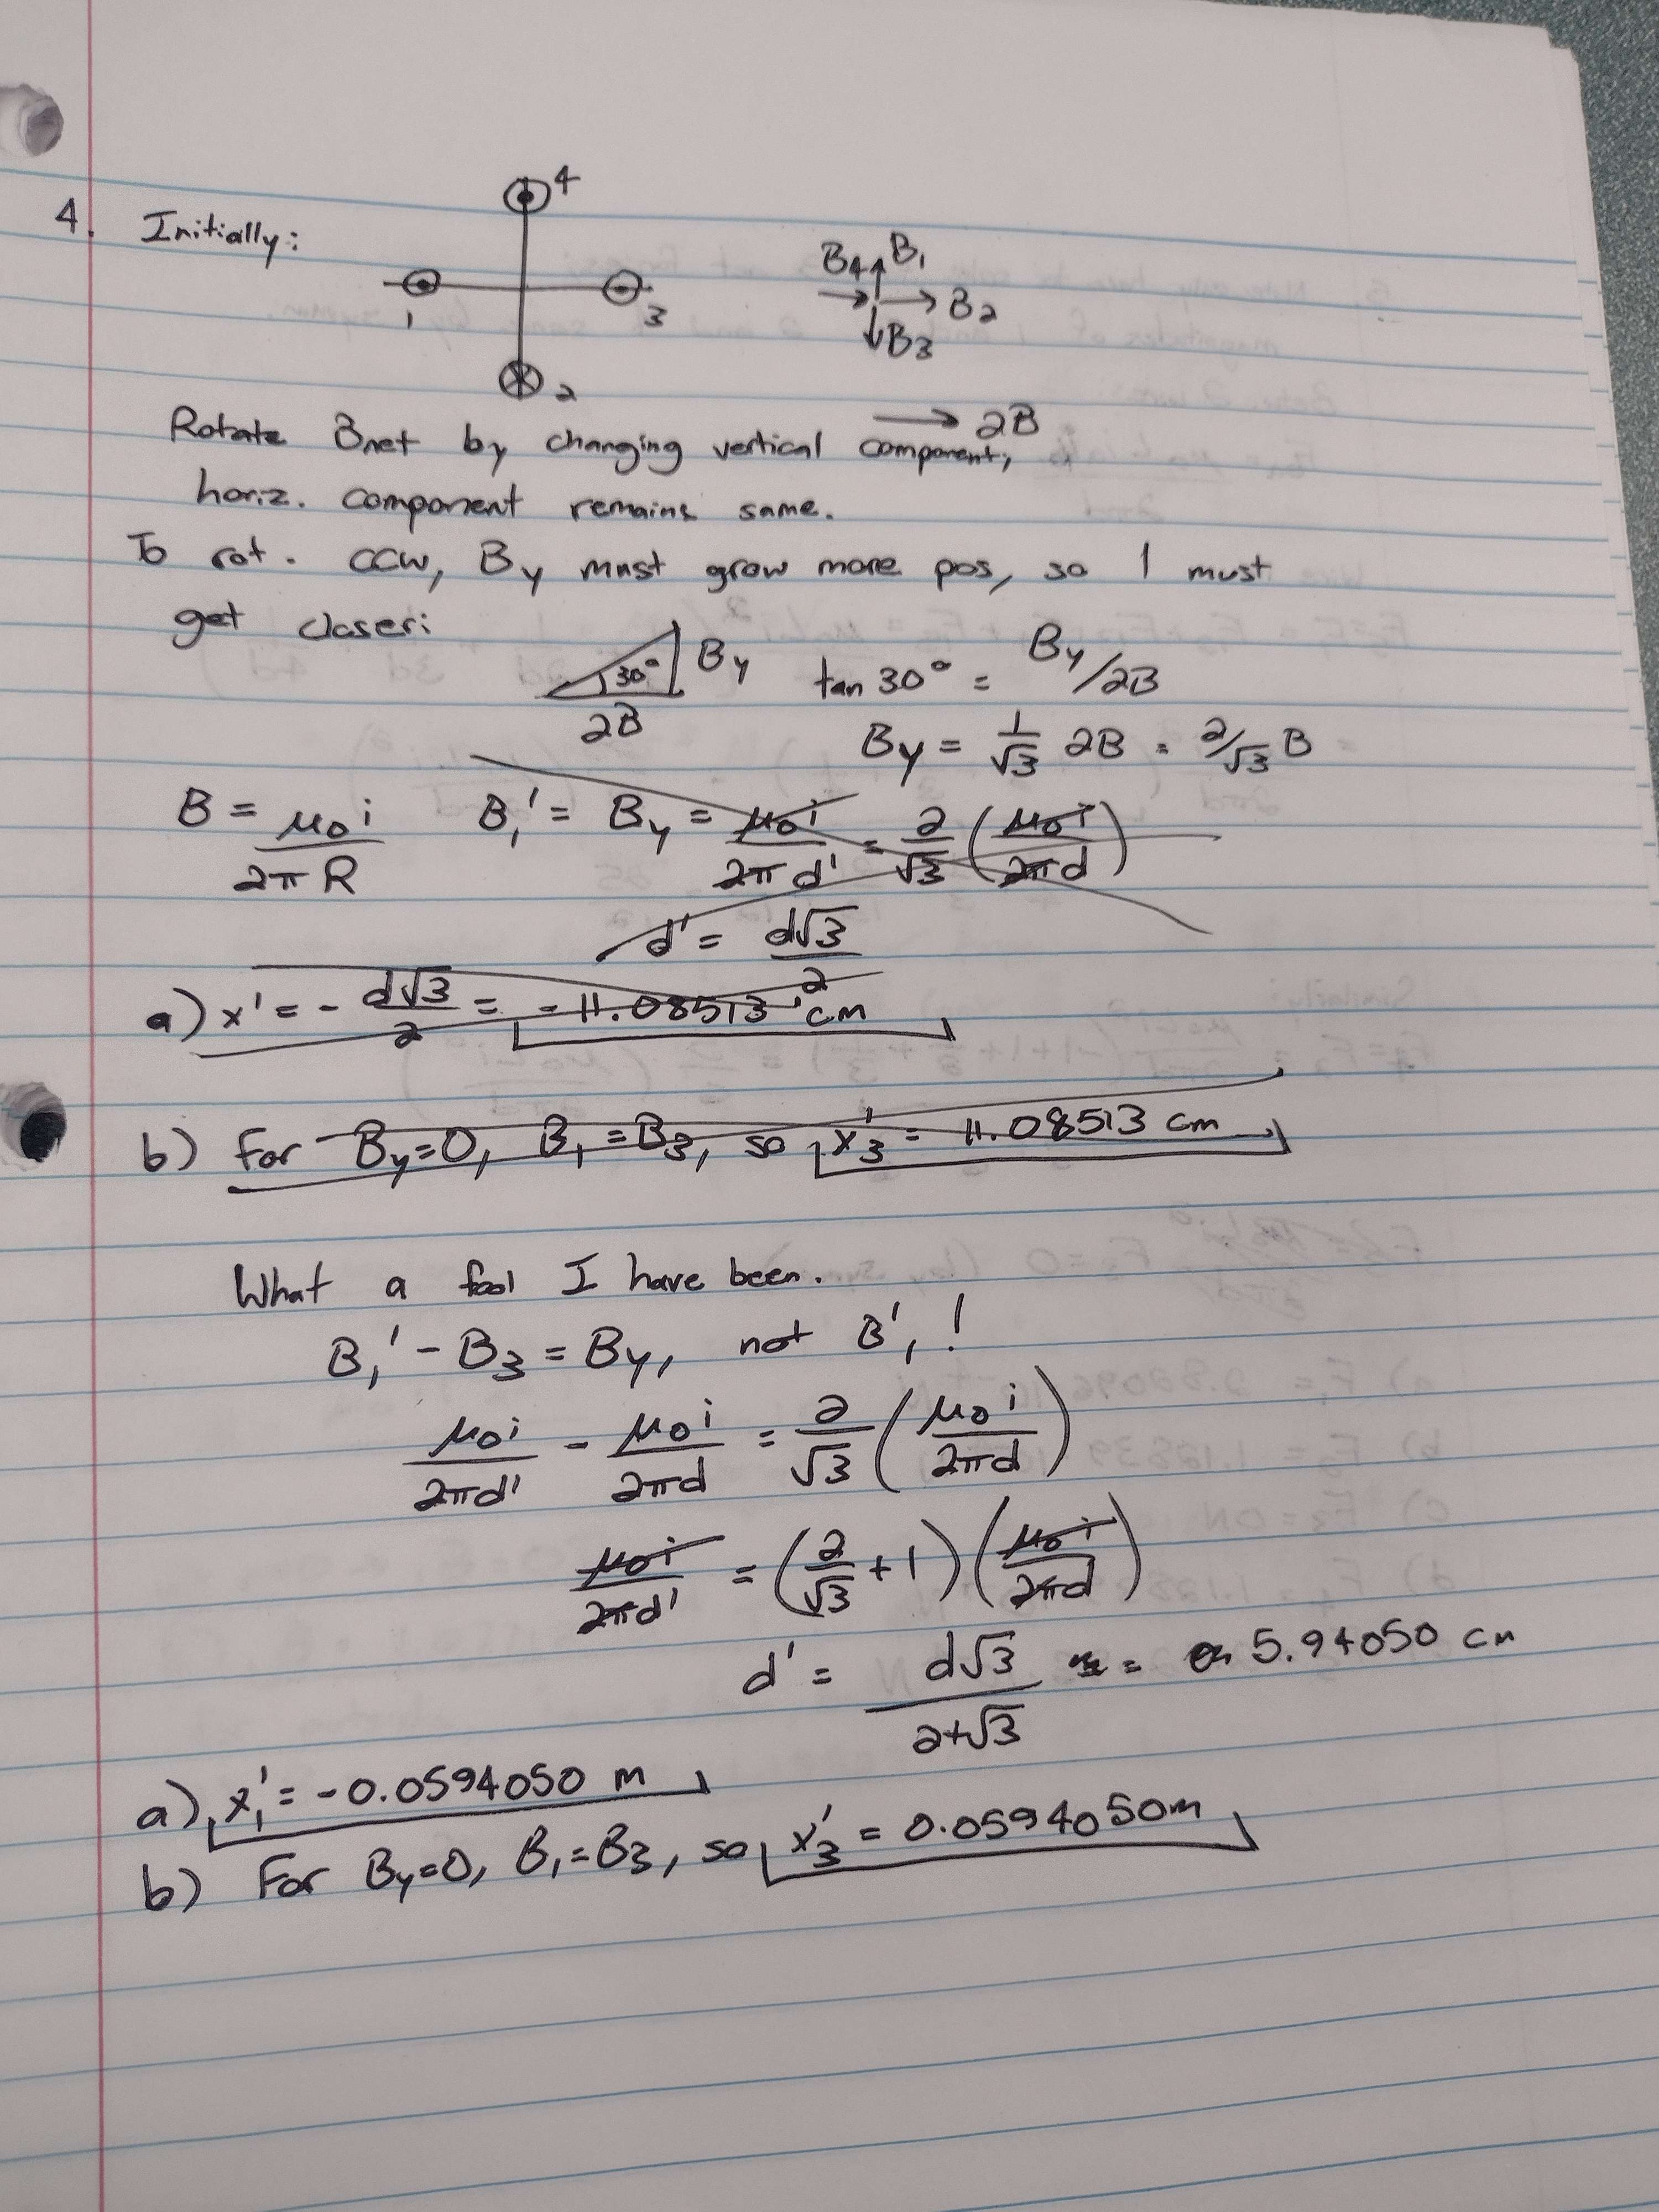 4. Initially:
4
1
3
2
B4 B1
B2
B3
→ 2B
Rotate Bnet by changing vertical component,
horiz. component remains same.
To rot. CCW, By must grow more pos, so 1 must
get closer:
30° By tan 30° = By/2B
2B
By = 1/√3 2B = 2/√3 B
B = μ0i/2πR B1' = By = μ0i/2πd' = 2/√3 (μ0i/2πd)
d' = d√3/2
a) x' = - d√3/2 = -11.08513 cm
b) For By=0, B1=B3, so x3' = 11.08513 cm
What a fool I have been.
B1' - B3 = By, not B1'!
μ0i/2πd' - μ0i/2πd = 2/√3 (μ0i/2πd)
μ0i/2πd' = (2/√3 + 1)(μ0i/2πd)
d' = d√3/2+√3 = 5.94050 cm
a) x1' = -0.0594050 m
b) For By=0, B1=B3, so x3' = 0.0594050m